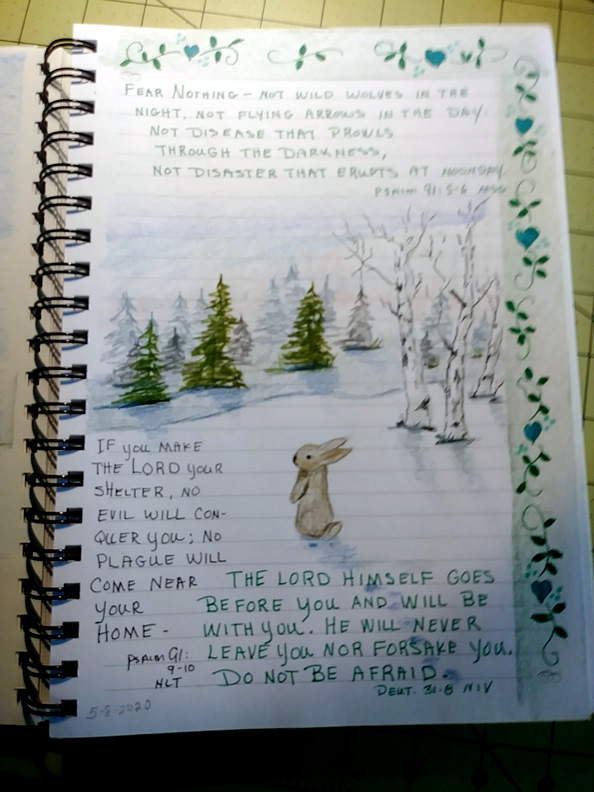 FEAR NOTHING – NOT WILD WOLVES IN THE
NIGHT, NOT FLYING ARROWS IN THE DAY.
NOT DISEASE THAT PROWLS
THROUGH THE DARKNESS,
NOT DISASTER THAT ERUPTS AT NOONDAY.
PSALM 91:5-6 MSG
IF YOU MAKE
THE LORD YOUR
SHELTER, NO
EVIL WILL CON-
QUER YOU; NO
PLAGUE WILL
COME NEAR
YOUR
HOME -
PSALM 91:
9-10
NLT
THE LORD HIMSELF GOES
BEFORE YOU AND WILL BE
WITH YOU. HE WILL NEVER
LEAVE YOU NOR FORSAKE YOU.
DO NOT BE AFRAID.
DEUT. 31-8 NIV
5-8-2020